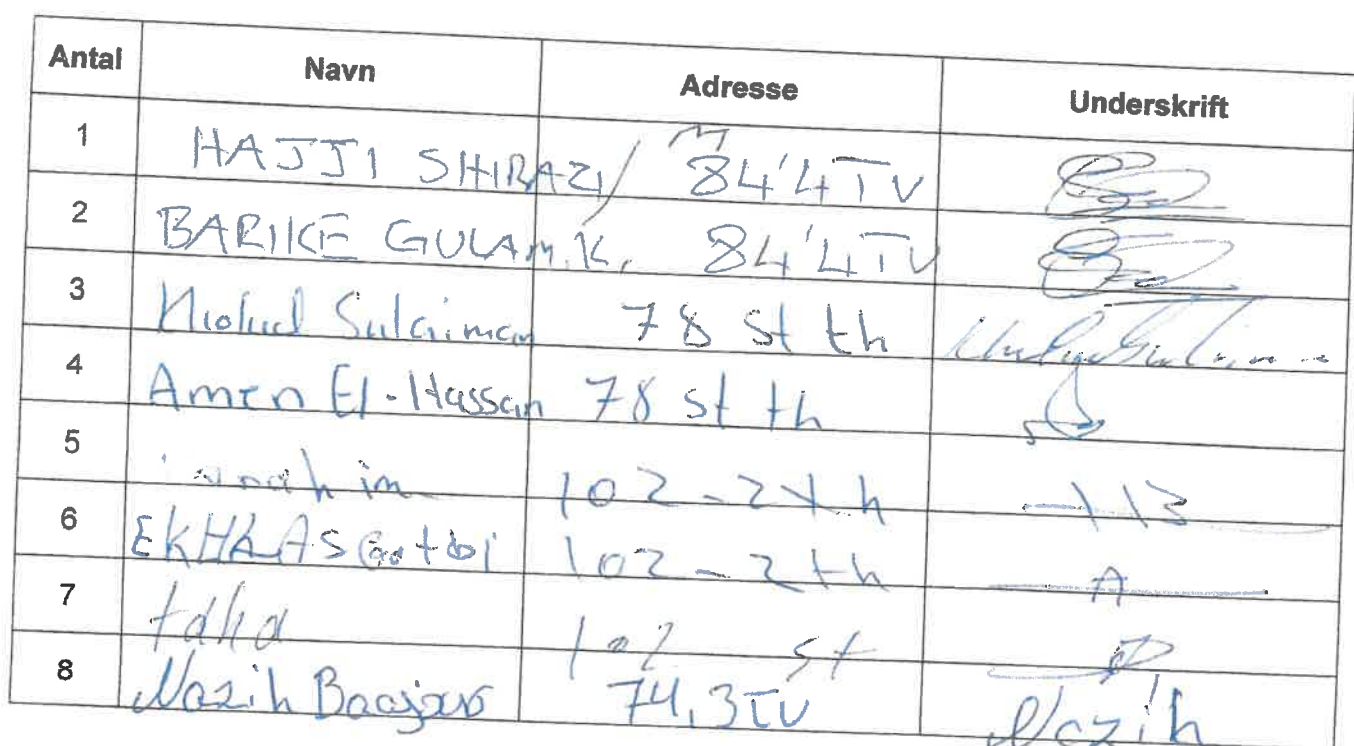 Antal Navn Adresse Underskrift
1 HAJJI SHIRAZI/ 84'4TV
2 BARIKE GULAM.K. 84'4TV
3 Sulaiman 78 st th
4 Amen El-Hassan 78 st th
5 102-2th
6 EKHLAS 102-2th
7 taha 102 st
8 Nazih 74,3TV Nazih